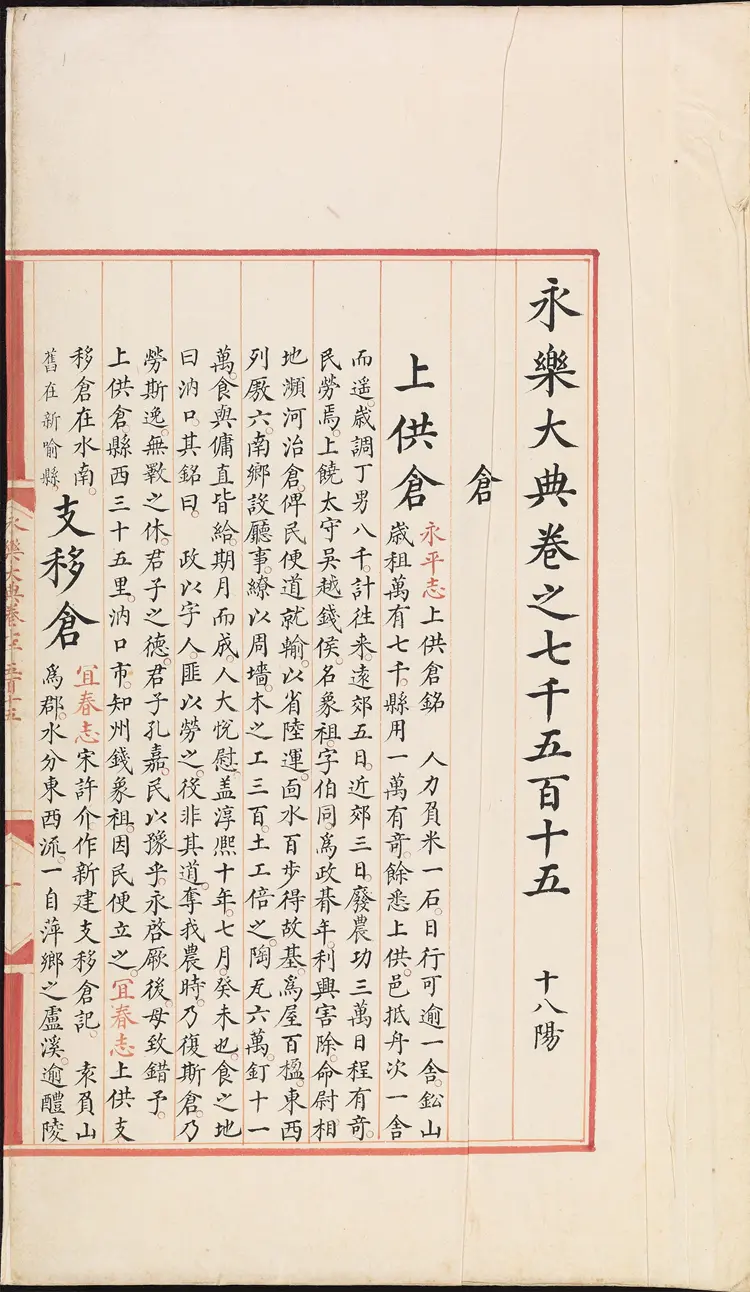 永樂大典卷之七千五百十五 十八陽
倉
上供倉
永平志上供倉銘 人力負米一石。日行可逾一舍。鈆山
歲租萬有七千。縣用一萬有奇。餘悉上供。邑抵舟次一舍
而遥。歲調丁男八千。計往來。遠郊五日。近郊三日。廢農功三萬日程有奇。
民勞焉。上饒太守吳越錢侯。名象祖。字伯同。爲政朞年。利興害除。命尉相
地瀕河治倉。俾民便道就輸。以省陸運。面水百步得故基。爲屋百楹。東西
列厫六。南鄉設廳事。繚以周墻。木之工三百。土工倍之。陶瓦六萬。釘十一
萬。食與傭直皆給。期月而成。人大悅慰。盖淳熈十年。七月。癸未也。食之地
曰汭口。其銘曰。 政以字人。匪以勞之。役非其道。奪我農時。乃復斯倉。乃
勞斯逸。無斁之休。君子之德。君子孔嘉。民以豫乎。永啓厥後。毋致錯予。
上供倉。縣西三十五里。汭口市。知州錢象祖。因民便立之。宜春志上供支
移倉在水南。
舊在新喻縣
支移倉
宜春志宋許介作新建支移倉記。 袁負山
爲郡。水分東西流。一自萍鄉之盧溪。逾醴陵
永樂大典卷七千五百十五